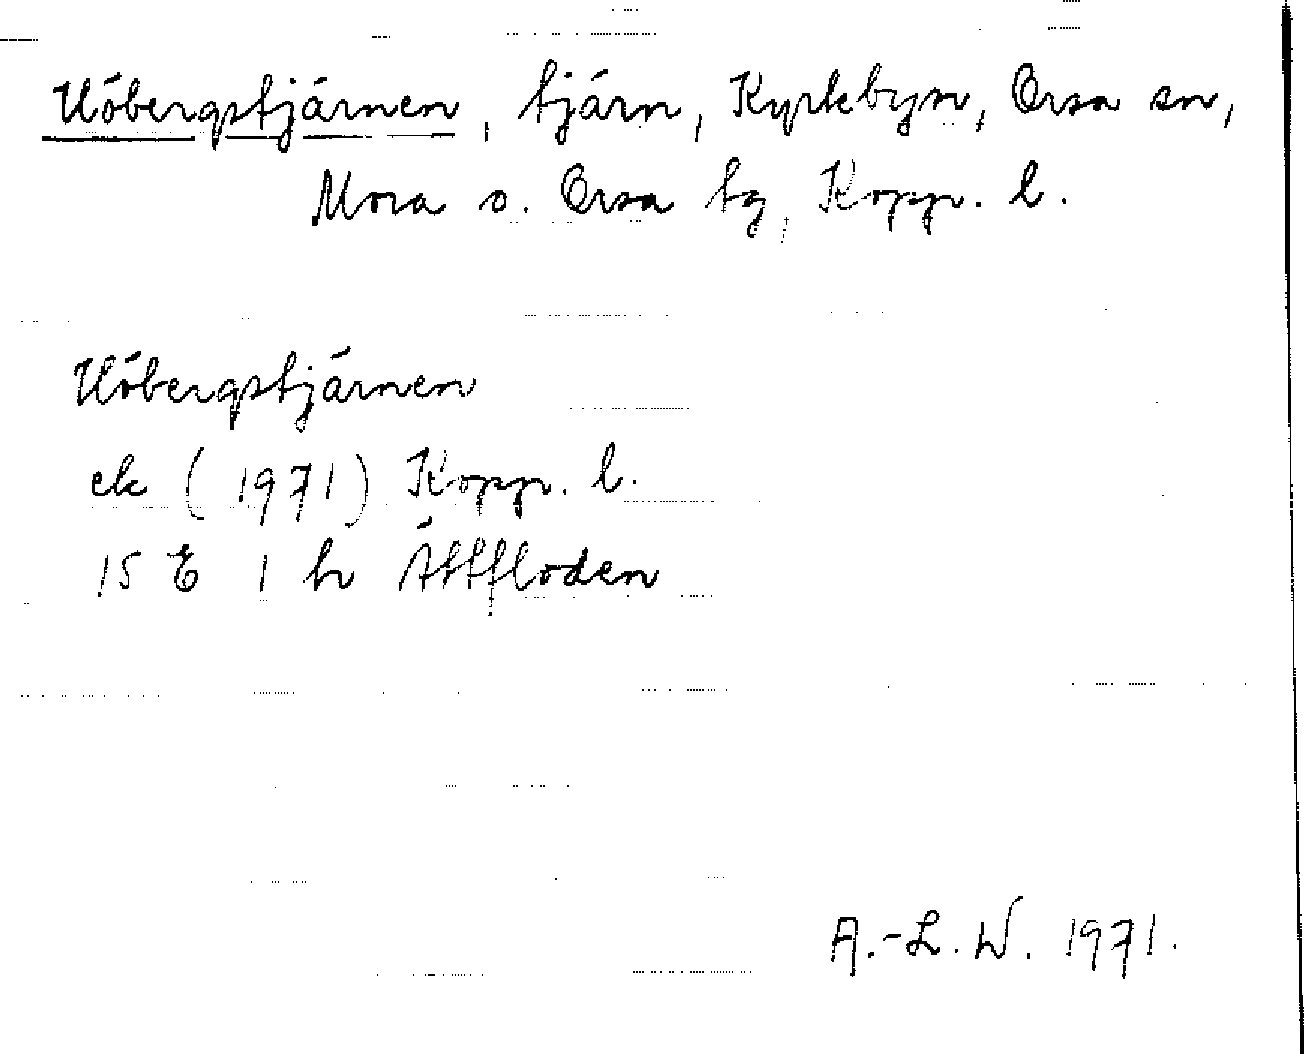 Höbergstjärnen, tjärn, Kyrkbyn, Orsa sn,
Mora o. Orsa tg, Kopp. l.
Höbergstjärnen
ek (1971) Kopp. l.
15 E 1 h Åttfloden
A.-L. W. 1971.